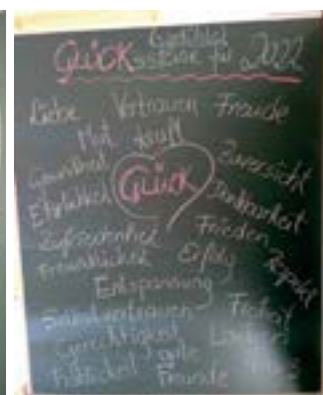 GLÜCKssteine für 2022
Liebe Vertrauen Freude
Mut Kraft
Gesundheit Zuversicht
Ehrlichkeit GLÜCK Dankbarkeit
Zufriedenheit Frieden
Freundlichkeit Erfolg Respekt
Entspannung
Selbstvertrauen Freiheit
Gerechtigkeit Lachen
Fröhlichkeit gute
Freunde